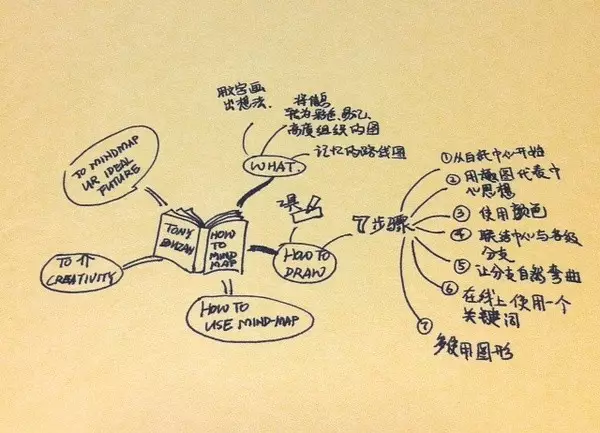 用文字画
出想法.
将信息
转为彩色、易记、
高度组织的图
记忆的路线图
WHAT.
TO MINDMAP
UR IDEAL
FUTURE
TONY
BUZAN
HOW
TO
MIND
MAP
TO 个
CREATIVITY
HOW TO
USE MIND-MAP
工具
HOW TO
DRAW
7步骤
① 从白纸中心开始
② 用趣图代表中
心思想
③ 使用颜色
④ 联结中心与各级
分支
⑤ 让分支自然弯曲
⑥ 在线上使用一个
关键词
⑦
多使用图形